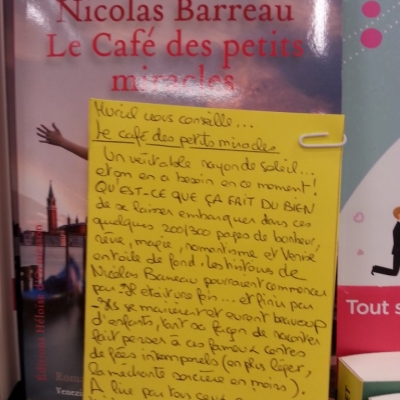 Nicolas Barreau
Le Café des petits
miracles
Muriel vous conseille...
Le café des petits miracles
Un véritable rayon de soleil...
et on en a besoin en ce moment !
QU'EST-CE QUE ÇA FAIT DU BIEN
de se laisser embarquer dans ces
quelques 200/300 pages de bonheur,
rêve, magie, romantisme et Venise
en toile de fond. Les histoires de
Nicolas Barreau pourraient commencer
par "Il était une fois... et finir par
- Ils se marièrent et eurent beaucoup
d'enfants, tant sa façon de raconter
fait penser à ces fameux contes
de fées intemporels (en plus léger,
la méchante sorcière en moins).
A lire pour tous ceux
Tout s
Editions Héloïse d'Ormesson
Roma
Venezi